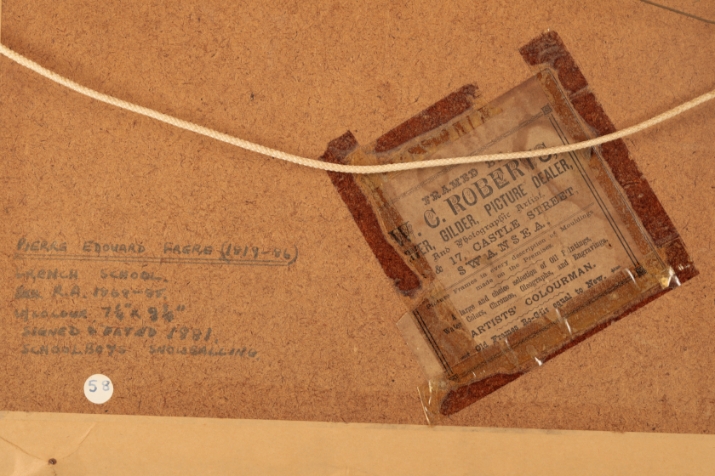 PIERRE EDOUARD FRERE (1819-86)
FRENCH SCHOOL.
EXH R.A. 1868-85.
SIGNED & DATED 1881
SCHOOLBOYS SNOWBALLING
58
FRAMED
W. C. ROBERTS,
GILDER, PICTURE DEALER,
And Photographic Artist,
& 17, CASTLE STREET
SWANSEA.
Frames in every description of
made on the Premises.
Large and choice selection of Oil Paintings,
Water Colors, Chromos, Oleographs, and Engravings.
ARTISTS' COLOURMAN.
Old Frames Re-Gilt equal to New.